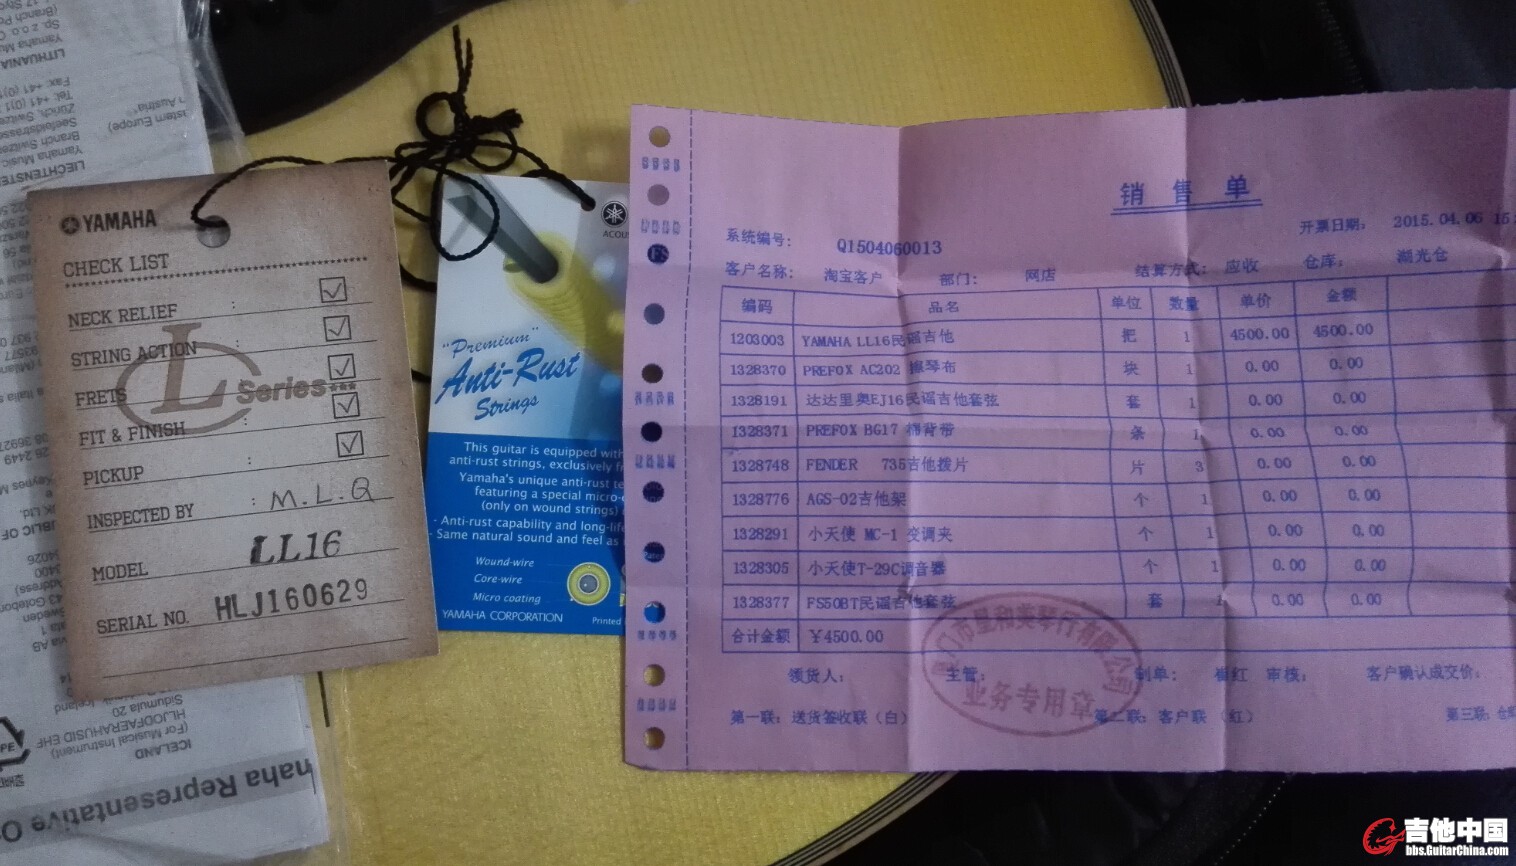 YAMAHA
CHECK LIST
NECK RELIEF :
STRING ACTION
FRETS
L Series
FIT & FINISH
PICKUP :
INSPECTED BY : M.L.Q
MODEL LL16
SERIAL NO. HLJ160629
"Premium"
Anti-Rust
Strings
This guitar is equipped with
anti-rust strings, exclusively
Yamaha's unique anti-rust
featuring a special micro-
(only on wound strings)
- Anti-rust capability and long-
- Same natural sound and feel as
Wound-wire
Core-wire
Micro coating
YAMAHA CORPORATION Printed
销售单
系统编号: Q1504060013 开票日期: 2015.04.06
客户名称: 淘宝客户 部门: 网店 结算方式: 应收 仓库: 湖光仓
编码 品名 单位 数量 单价 金额
1203003 YAMAHA LL16民谣吉他 把 1 4500.00 4500.00
1328370 PREFOX AC202 擦琴布 块 1 0.00 0.00
1328191 达达里奥EJ16民谣吉他套弦 套 1 0.00 0.00
1328371 PREFOX BG17 棉背带 条 1 0.00 0.00
1328748 FENDER 735吉他拨片 片 3 0.00 0.00
1328776 AGS-02吉他架 个 1 0.00 0.00
1328291 小天使 MC-1 变调夹 个 1 0.00 0.00
1328305 小天使T-29C调音器 个 1 0.00 0.00
1328377 FS50BT民谣吉他套弦 套 1 0.00 0.00
合计金额 ¥4500.00
领货人: 主管: 制单: 崔红 审核: 客户确认成交价:
业务专用章
第一联: 送货签收联(白) 第二联: 客户联 (红) 第三联:
LITHUANIA
ICELAND
(For Musical Instrument)
HLJODFAERAHUSID EHF
Sidumula 20
吉他中国
bbs.GuitarChina.com